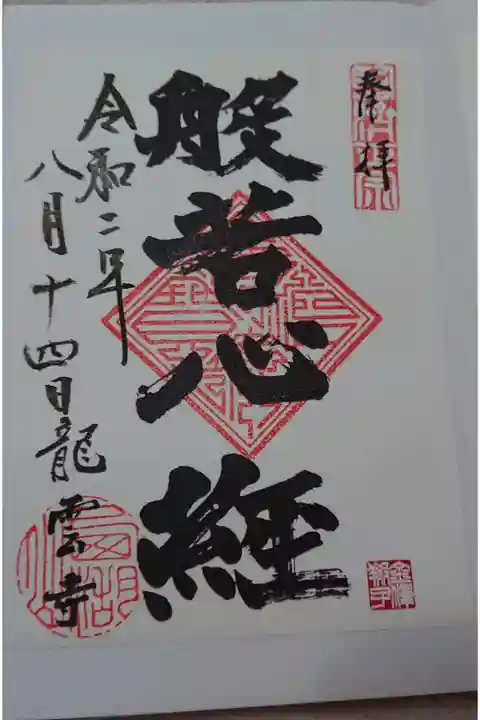 奉拝
般若心経
令和二年
八月十四日龍雲寺
金澤
翔子